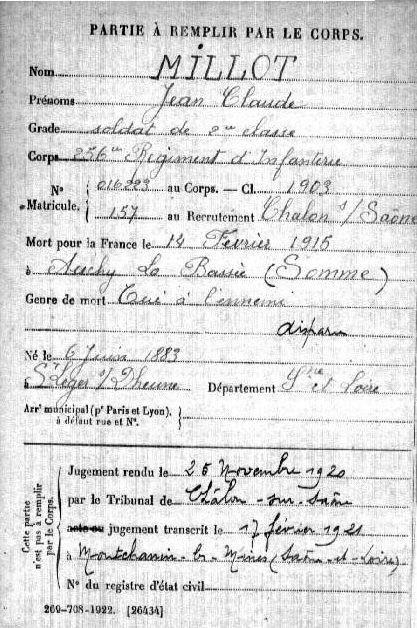 PARTIE À REMPLIR PAR LE CORPS.
Nom MILLOT
Prénoms Jean Claude
Grade soldat de 2me classe
Corps 256me Régiment d'Infanterie
N° 016223 au Corps. — Cl. 1903
Matricule. 157 au Recrutement Chalon s/Saône
Mort pour la France le 14 Février 1915
à La Bassée (Somme)
Genre de mort Tué à l'ennemi
disparu
Né le 6 Juin 1883
à St Léger s/Dheune Département Sne et Loire
Arrt municipal (pr Paris et Lyon).
à défaut rue et N°.
Cette partie
n'est pas à remplir
par le Corps.
Jugement rendu le 25 Novembre 1920
par le Tribunal de Châlon-sur-Saône
acte ou jugement transcrit le 17 février 1921
à Montchanin-les-Mines (Saône-et-Loire)
N° du registre d'état civil
269-708-1922. [26434]